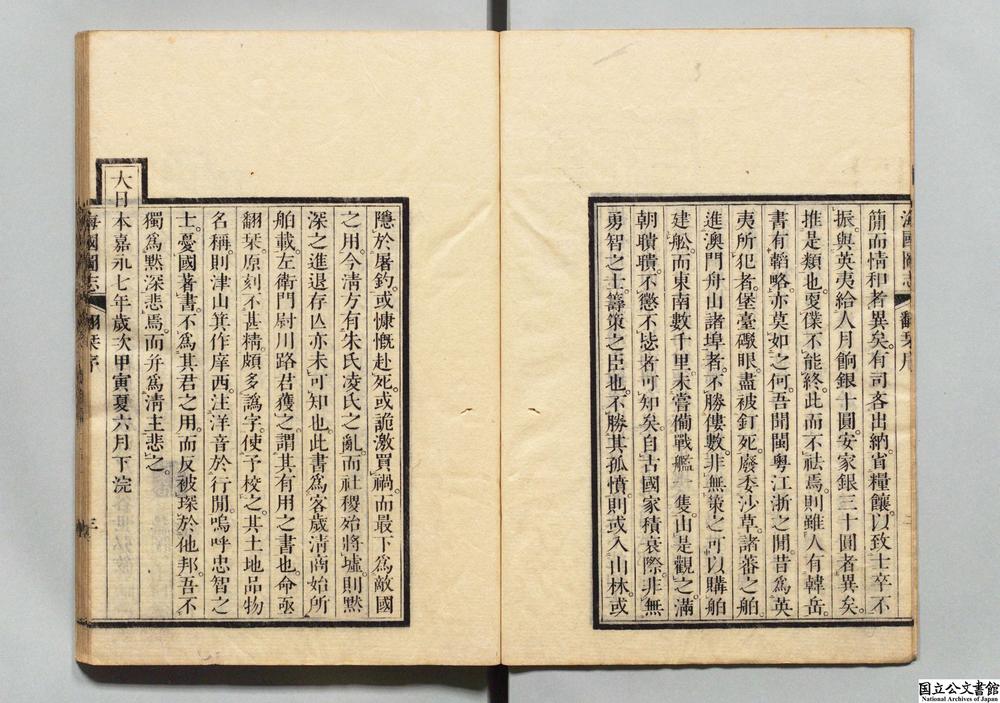 海國圖志 翻栞序
簡而情和者異矣。有司吝出納。省糧饟。以致士卒不
振。與英夷給人月餉銀十圓。安家銀三十圓者異矣。
推是類也。更僕不能終。此而不祛焉。則雖人有韓岳。
書有韜略。亦莫如之何。吾聞閩粵江浙之閒。昔為英
夷所犯者。堡臺礮眼。盡被釘死。廢委沙草。諸蕃之舶
進澳門舟山諸埠者。不勝僂數。非無策之可以購舶
建舩。而東南數千里。未嘗備戰艦一隻。由是觀之。滿
朝聵聵。不懲不毖者可知矣。自古國家積衰際。非無
勇智之士。籌策之臣也。不勝其孤憤。則或入山林。或
隱於屠釣。或慷慨赴死。或詭激買禍。而最下為敵國
之用。今清方有朱氏凌氏之亂。而社稷始將墟。則默
深之進退存亾亦未可知也。此書為客歲清商始所
舶載。左衛門尉川路君獲之。謂其有用之書也。命亟
翻栞。原刻不甚精。頗多譌字。使予校之。其土地品物
名稱。則津山箕作庠西。注洋音於行閒。嗚呼忠智之
士。憂國著書。不為其君之用。而反被琛於他邦。吾不
獨為默深悲焉。而并為清主悲之。
大日本嘉永七年歲次甲寅夏六月下浣
海國圖志 翻栞序 三
国立公文書館
National Archives of Japan